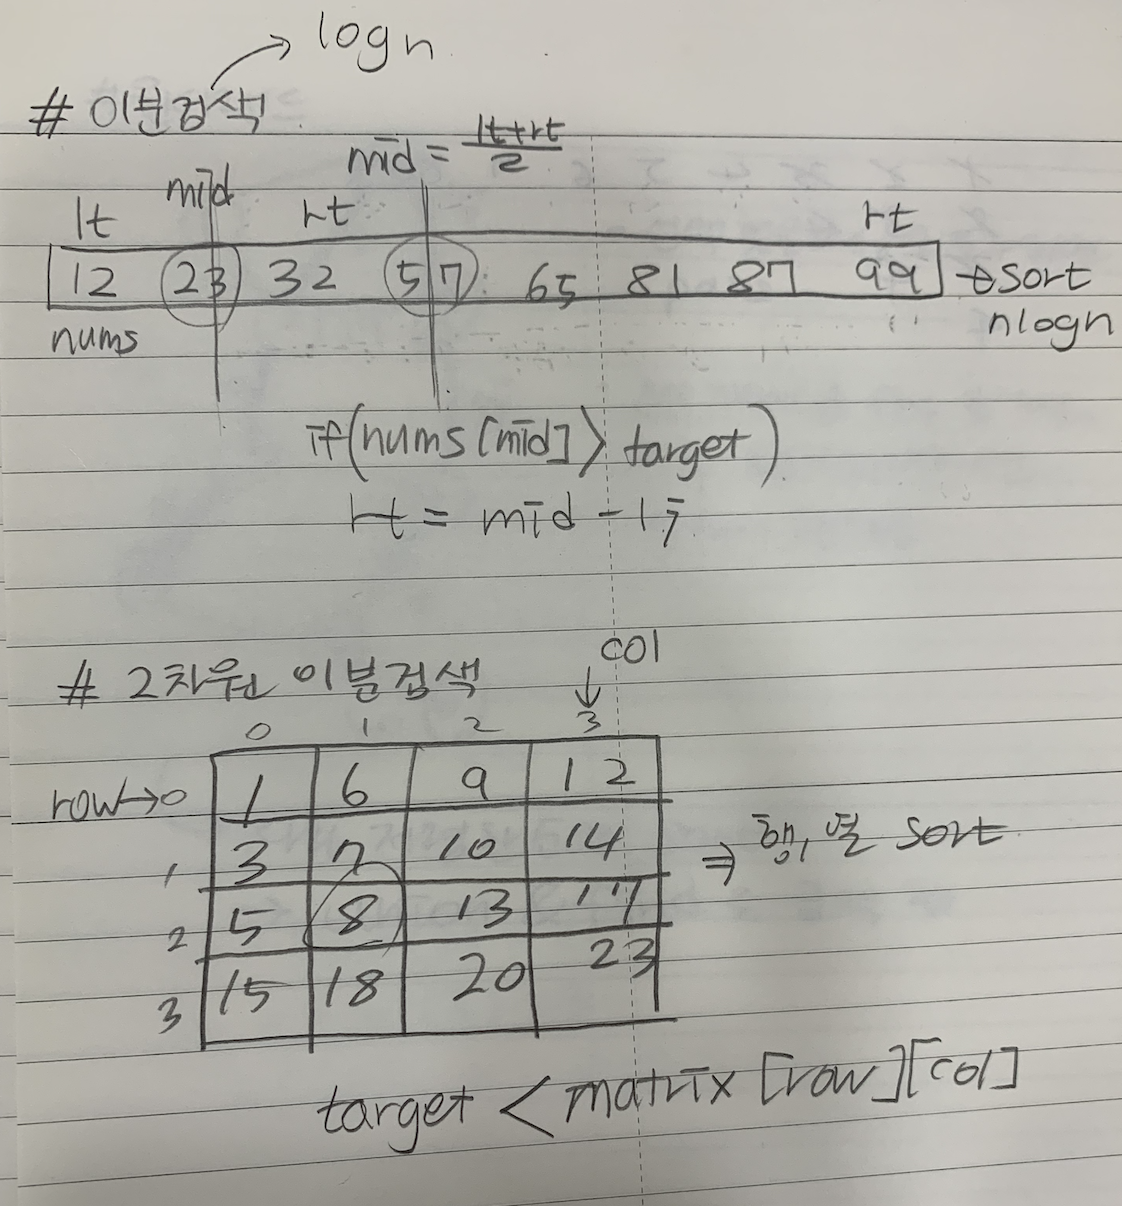 logn
# 이분검색
mid = lt+rt
2
lt mid rt rt
12 23 32 57 65 81 87 99 → sort
nums nlogn
if(nums[mid] > target)
rt = mid - 1;
# 2차원 이분검색 col
0 1 2 3
row→0 1 6 9 12
1 3 7 10 14 ⇒ 행, 열 sort
2 5 8 13 17
3 15 18 20 23
target < matrix [row][col]